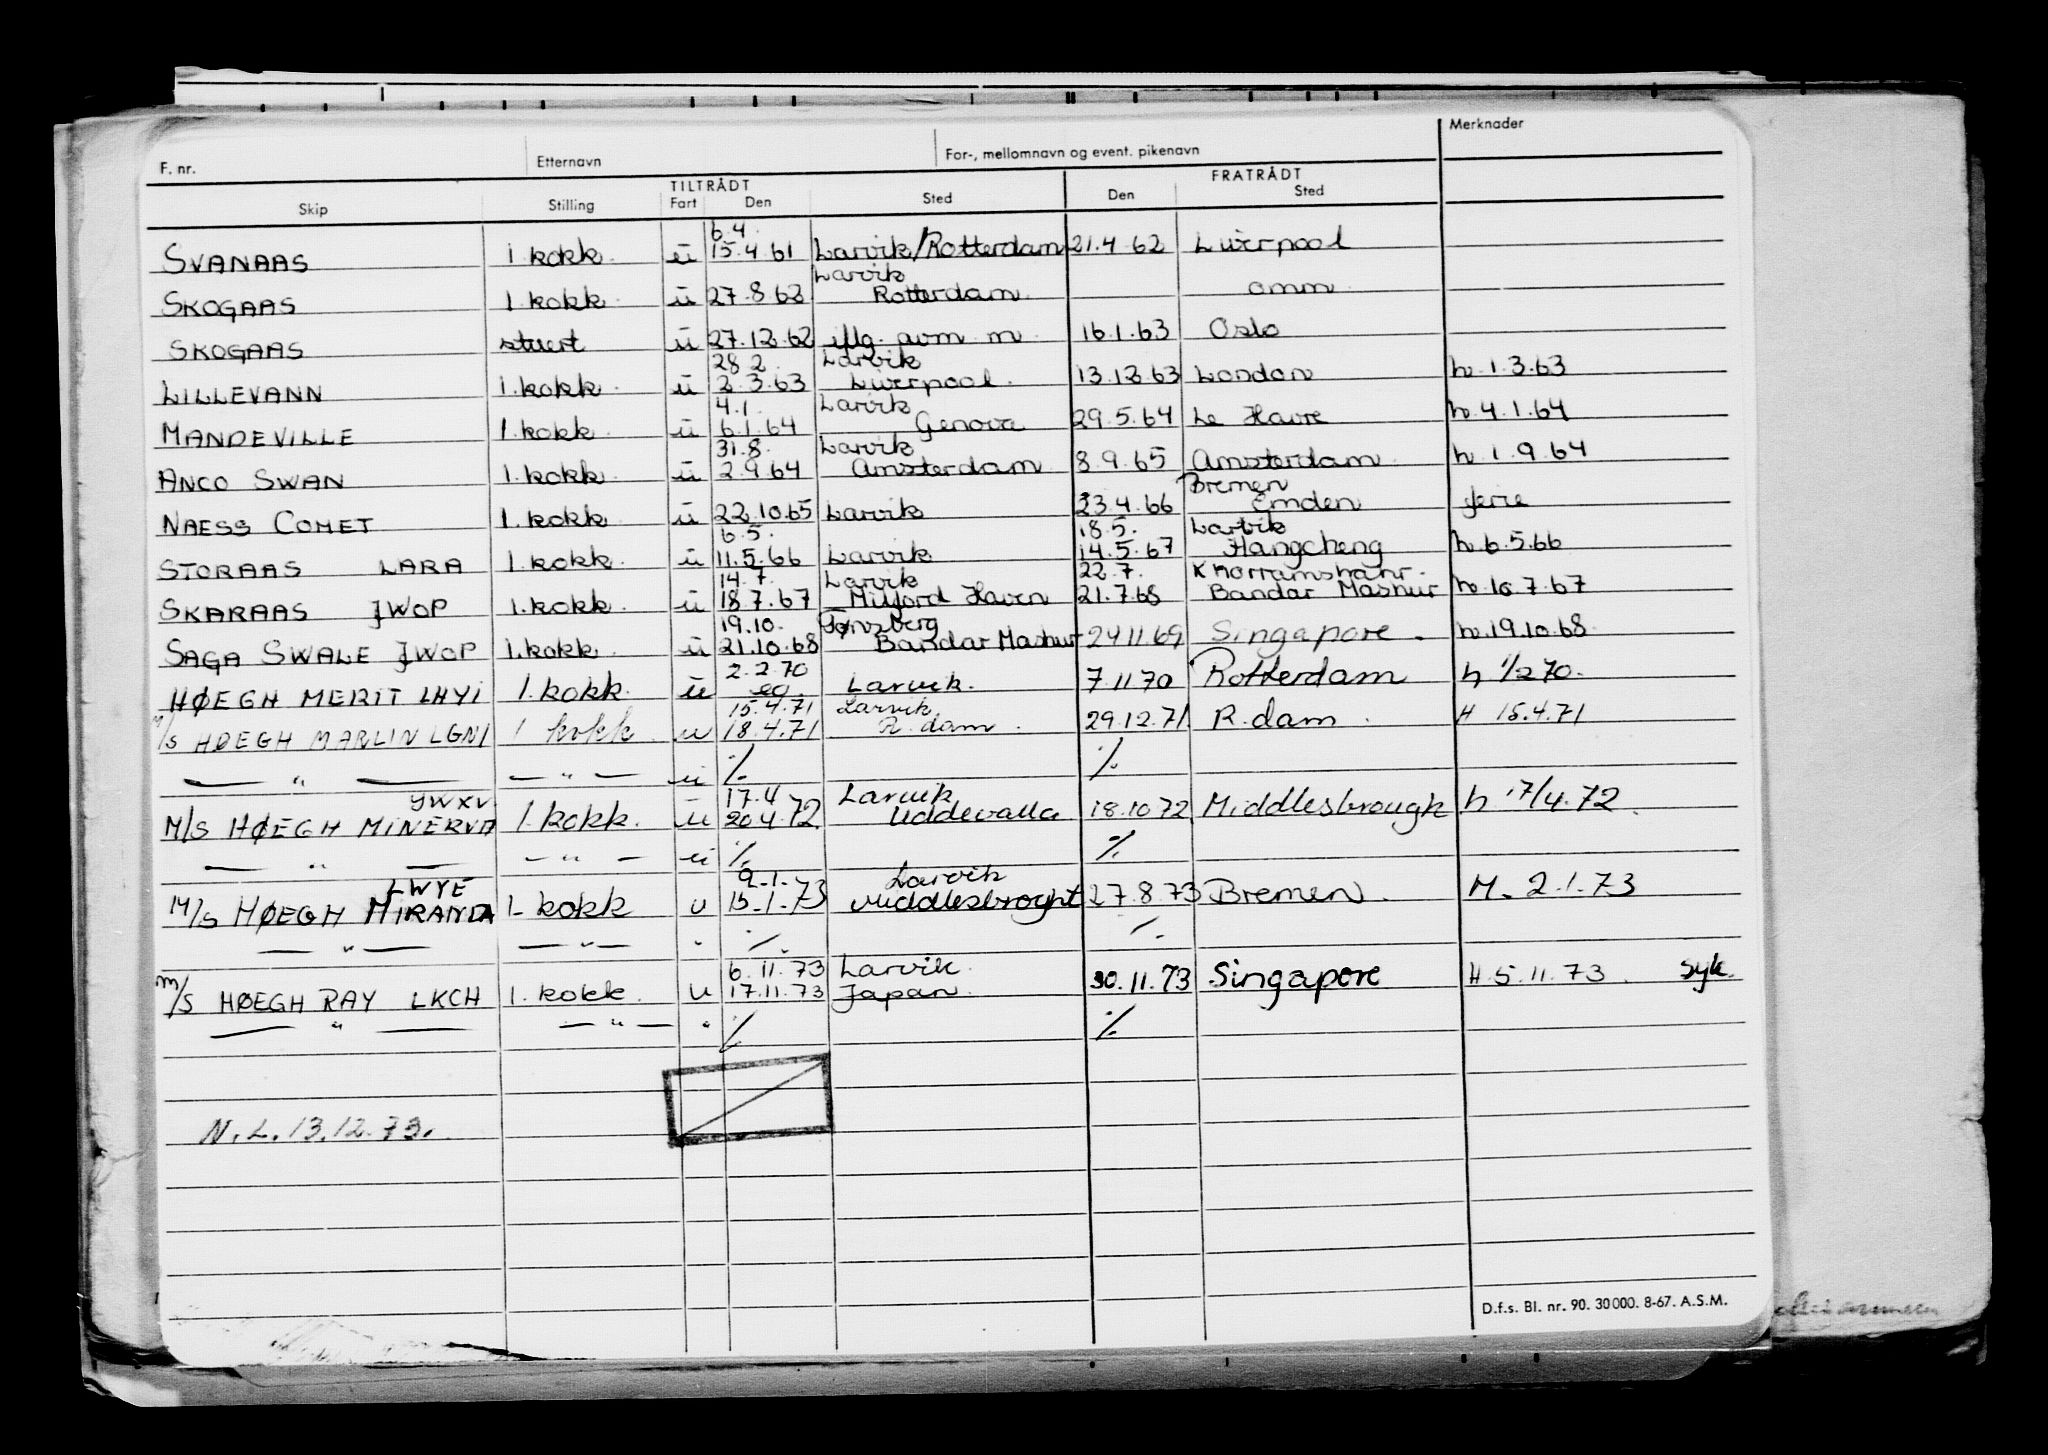 F. nr. Etternavn For-, mellomnavn og event. pikenavn Merknader
TILTRÅDT FRATRÅDT
Skip Stilling Fart Den Sted Den Sted
6.4.
SVANAAS 1. kokk ū 15.4.61 Larvik/Rotterdam 21.4.62 Liverpool
Larvik
SKOGAAS 1. kokk ū 27.8.62 Rotterdam omm
SKOGAAS stuert ū 27.12.62 iflg. avm. m. 16.1.63 Oslo
28.2. Larvik
LILLEVANN 1. kokk ū 2.3.63 Liverpool. 13.12.63 London h. 1.3.63
4.1. Larvik
MANDEVILLE 1. kokk ū 6.1.64 Genova 29.5.64 Le Havre h. 4.1.64
31.8. Larvik
ANCO SWAN 1. kokk ū 2.9.64 Amsterdam 8.9.65 Amsterdam h. 1.9.64
Bremen
NAESS COMET 1. kokk ū 22.10.65 Larvik 23.4.66 Emden ferie
6.5. 18.5. Larvik
STORAAS LARA 1. kokk ū 11.5.66 Larvik 14.5.67 Hangcheng h. 6.5.66
14.7. Larvik 22.7. Khorramshahr.
SKARAAS JWOP 1. kokk ū 18.7.67 Milford Haven 21.7.68 Bandar Mashur h. 10.7.67
19.10. Tønsberg
SAGA SWALE JWOP 1. kokk ū 21.10.68 Bandar Mashur 24.11.69 Singapore. h. 19.10.68
2.2.70
HØEGH MERIT LHYI 1. kokk ū Larvik. 7.11.70 Rotterdam h 1/2 70.
15.4.71 Larvik
M/S HØEGH MARLIN LGNI 1 kokk u 18.4.71 R. dam. 29.12.71 R. dam. H 15.4.71
— " — — " — u ⁒ ⁒
JWXV 17.4 Larvik
M/S HØEGH MINERVA 1. kokk. ū 20.4.72. Uddevalla 18.10.72 Middlesbrough h 17/4.72.
— " — — " — u ⁒ ⁒
LWYE 9.1. Larvik
M/S HØEGH MIRANDA 1. kokk u 15.1.73 Middlesbroght 27.8.73 Bremen. M. 2.1.73
— " — — " — " ⁒ ⁒
6.11.73 Larvik.
M/S HØEGH RAY LKCH 1. kokk. u 17.11.73 Japan. 30.11.73 Singapore H. 5.11.73. Syk.
— " — — " — " ⁒ ⁒
N.L. 13.12.73.
D.f.s. Bl. nr. 90. 30000. 8-67. A.S.M.